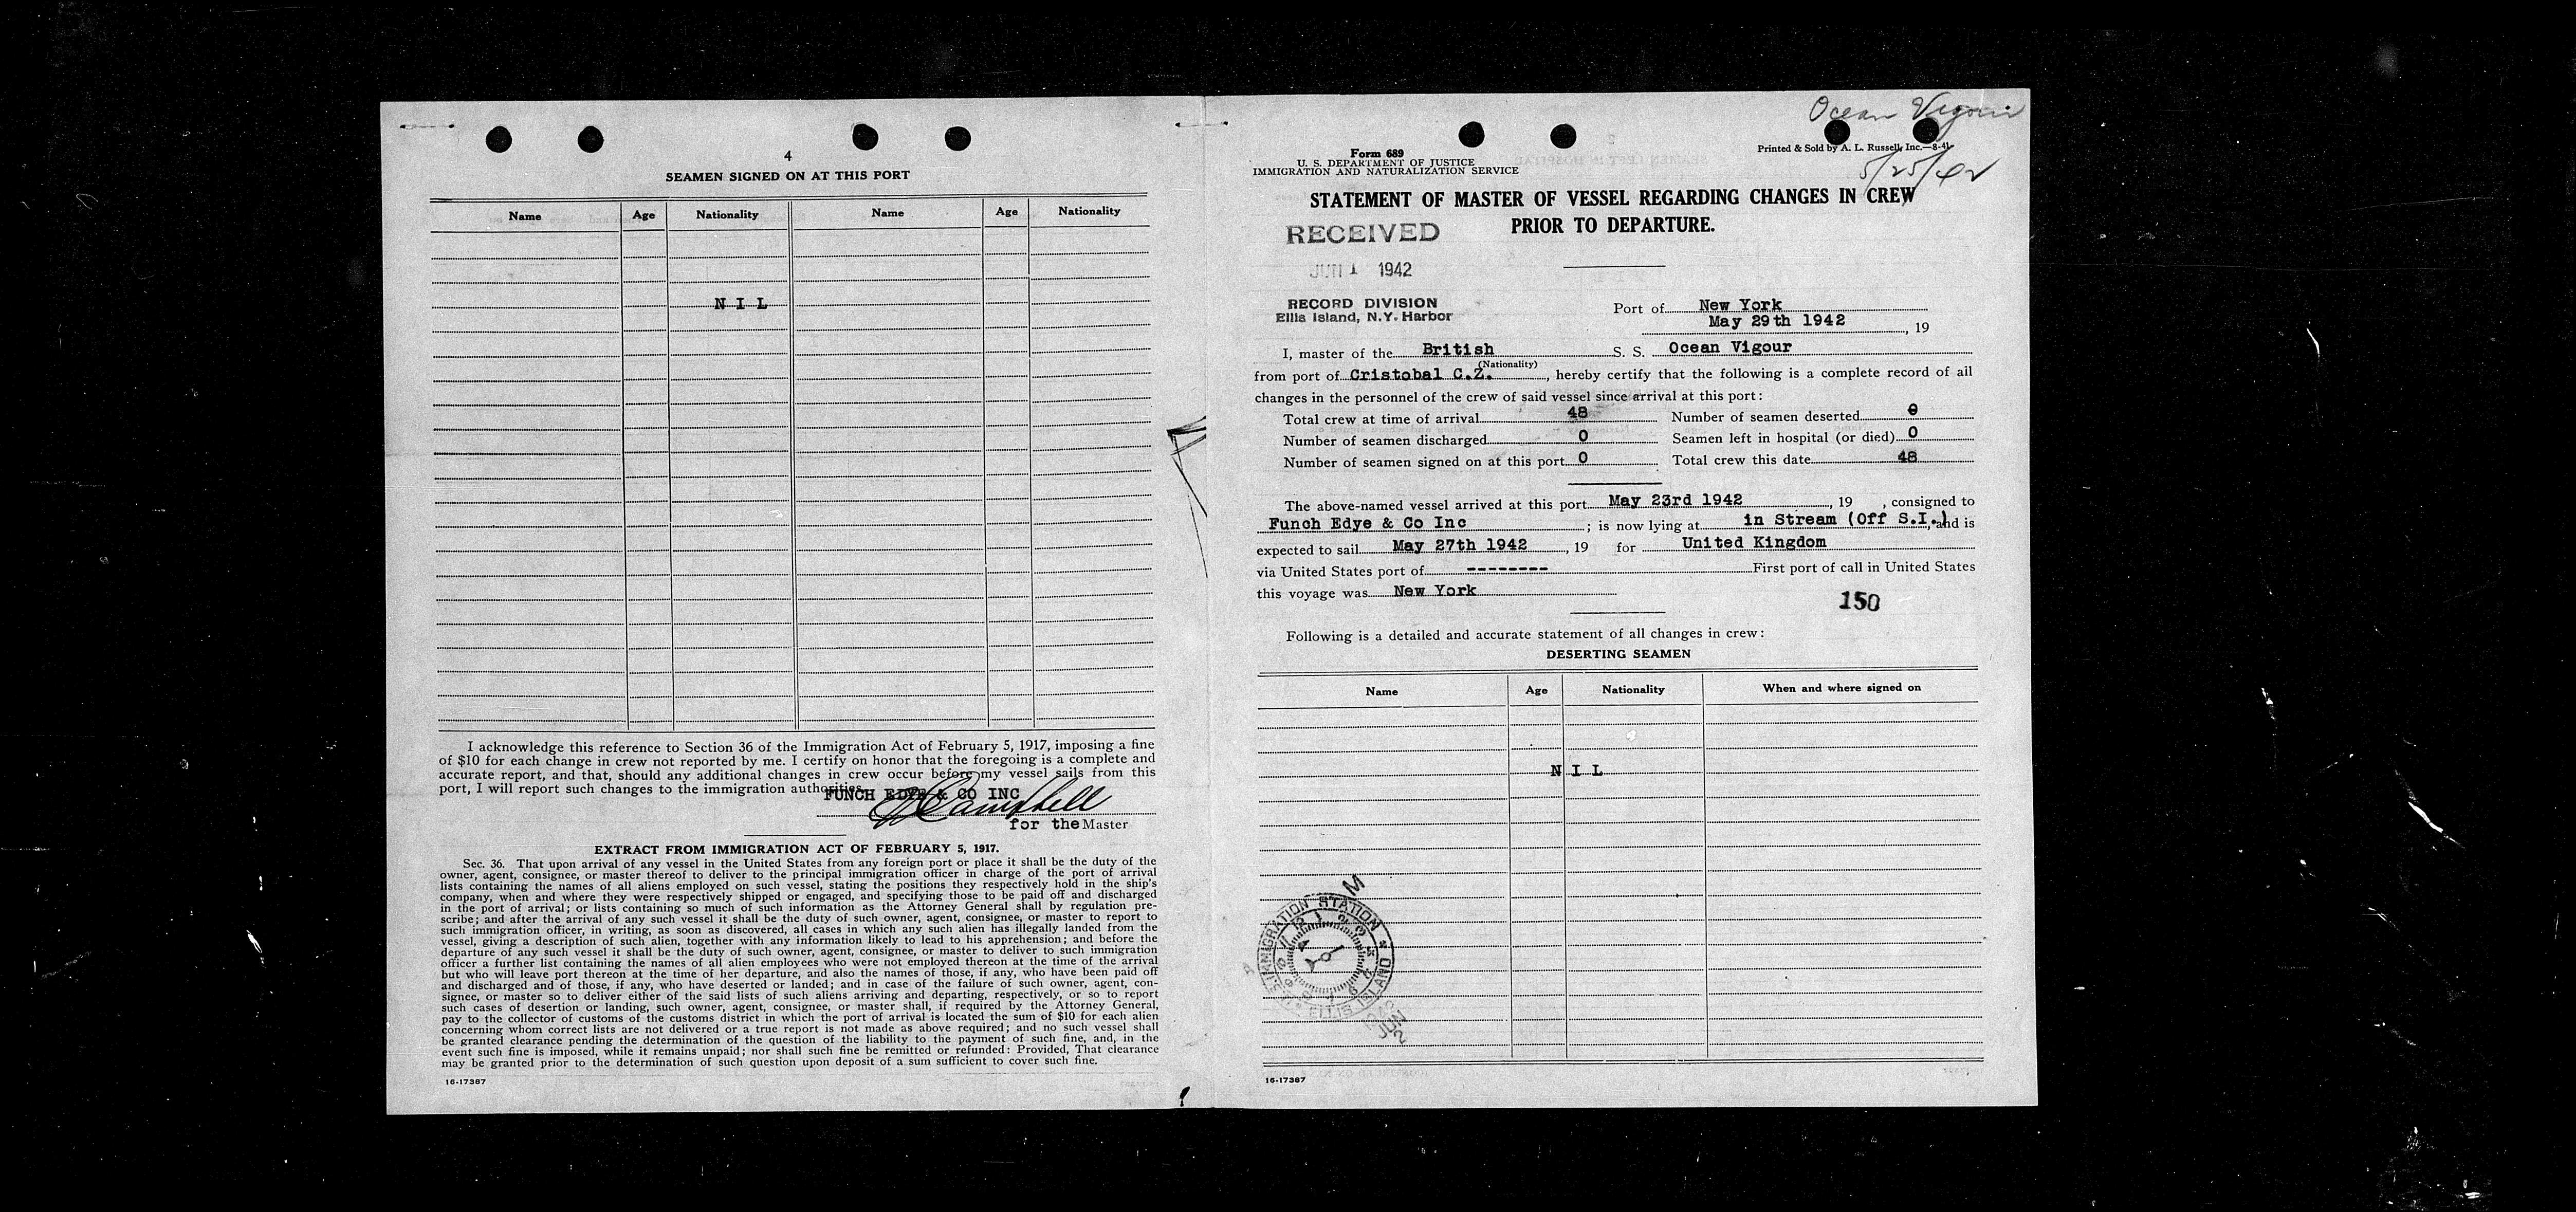 4
SEAMEN SIGNED ON AT THIS PORT
Name Age Nationality Name Age Nationality
N I L
I acknowledge this reference to Section 36 of the Immigration Act of February 5, 1917, imposing a fine
of $10 for each change in crew not reported by me. I certify on honor that the foregoing is a complete and
accurate report, and that, should any additional changes in crew occur before my vessel sails from this
port, I will report such changes to the immigration authorities.
FUNCH EDYE & CO INC
Campbell
for the Master
EXTRACT FROM IMMIGRATION ACT OF FEBRUARY 5, 1917.
Sec. 36. That upon arrival of any vessel in the United States from any foreign port or place it shall be the duty of the
owner, agent, consignee, or master thereof to deliver to the principal immigration officer in charge of the port of arrival
lists containing the names of all aliens employed on such vessel, stating the positions they respectively hold in the ship's
company, when and where they were respectively shipped or engaged, and specifying those to be paid off and discharged
in the port of arrival; or lists containing so much of such information as the Attorney General shall by regulation pre-
scribe; and after the arrival of any such vessel it shall be the duty of such owner, agent, consignee, or master to report to
such immigration officer, in writing, as soon as discovered, all cases in which any such alien has illegally landed from the
vessel, giving a description of such alien, together with any information likely to lead to his apprehension; and before the
departure of any such vessel it shall be the duty of such owner, agent, consignee, or master to deliver to such immigration
officer a further list containing the names of all alien employees who were not employed thereon at the time of the arrival
but who will leave port thereon at the time of her departure, and also the names of those, if any, who have been paid off
and discharged and of those, if any, who have deserted or landed; and in case of the failure of such owner, agent, con-
signee, or master so to deliver either of the said lists of such aliens arriving and departing, respectively, or so to report
such cases of desertion or landing, such owner, agent, consignee, or master shall, if required by the Attorney General,
pay to the collector of customs of the customs district in which the port of arrival is located the sum of $10 for each alien
concerning whom correct lists are not delivered or a true report is not made as above required; and no such vessel shall
be granted clearance pending the determination of the question of the liability to the payment of such fine, and, in the
event such fine is imposed, while it remains unpaid; nor shall such fine be remitted or refunded: Provided, That clearance
may be granted prior to the determination of such question upon deposit of a sum sufficient to cover such fine.
16-17387
Ocean Vigour
Form 689
U. S. DEPARTMENT OF JUSTICE
IMMIGRATION AND NATURALIZATION SERVICE
Printed & Sold by A. L. Russell, Inc.—8-41
5/25/42
STATEMENT OF MASTER OF VESSEL REGARDING CHANGES IN CREW
PRIOR TO DEPARTURE.
RECEIVED
JUN 1 1942
RECORD DIVISION
Ellis Island, N.Y. Harbor
Port of New York
May 29th 1942, 19
I, master of the British S. S. Ocean Vigour
(Nationality)
from port of Cristobal C.Z., hereby certify that the following is a complete record of all
changes in the personnel of the crew of said vessel since arrival at this port:
Total crew at time of arrival 48 Number of seamen deserted 0
Number of seamen discharged 0 Seamen left in hospital (or died) 0
Number of seamen signed on at this port 0 Total crew this date 48
The above-named vessel arrived at this port May 23rd 1942, 19 , consigned to
Funch Edye & Co Inc; is now lying at in Stream (Off S.I.), and is
expected to sail May 27th 1942, 19 for United Kingdom
via United States port of -------- First port of call in United States
this voyage was New York
150
Following is a detailed and accurate statement of all changes in crew:
DESERTING SEAMEN
Name Age Nationality When and where signed on
N I L
IMMIGRATION STATION
ELLIS ISLAND
16-17387